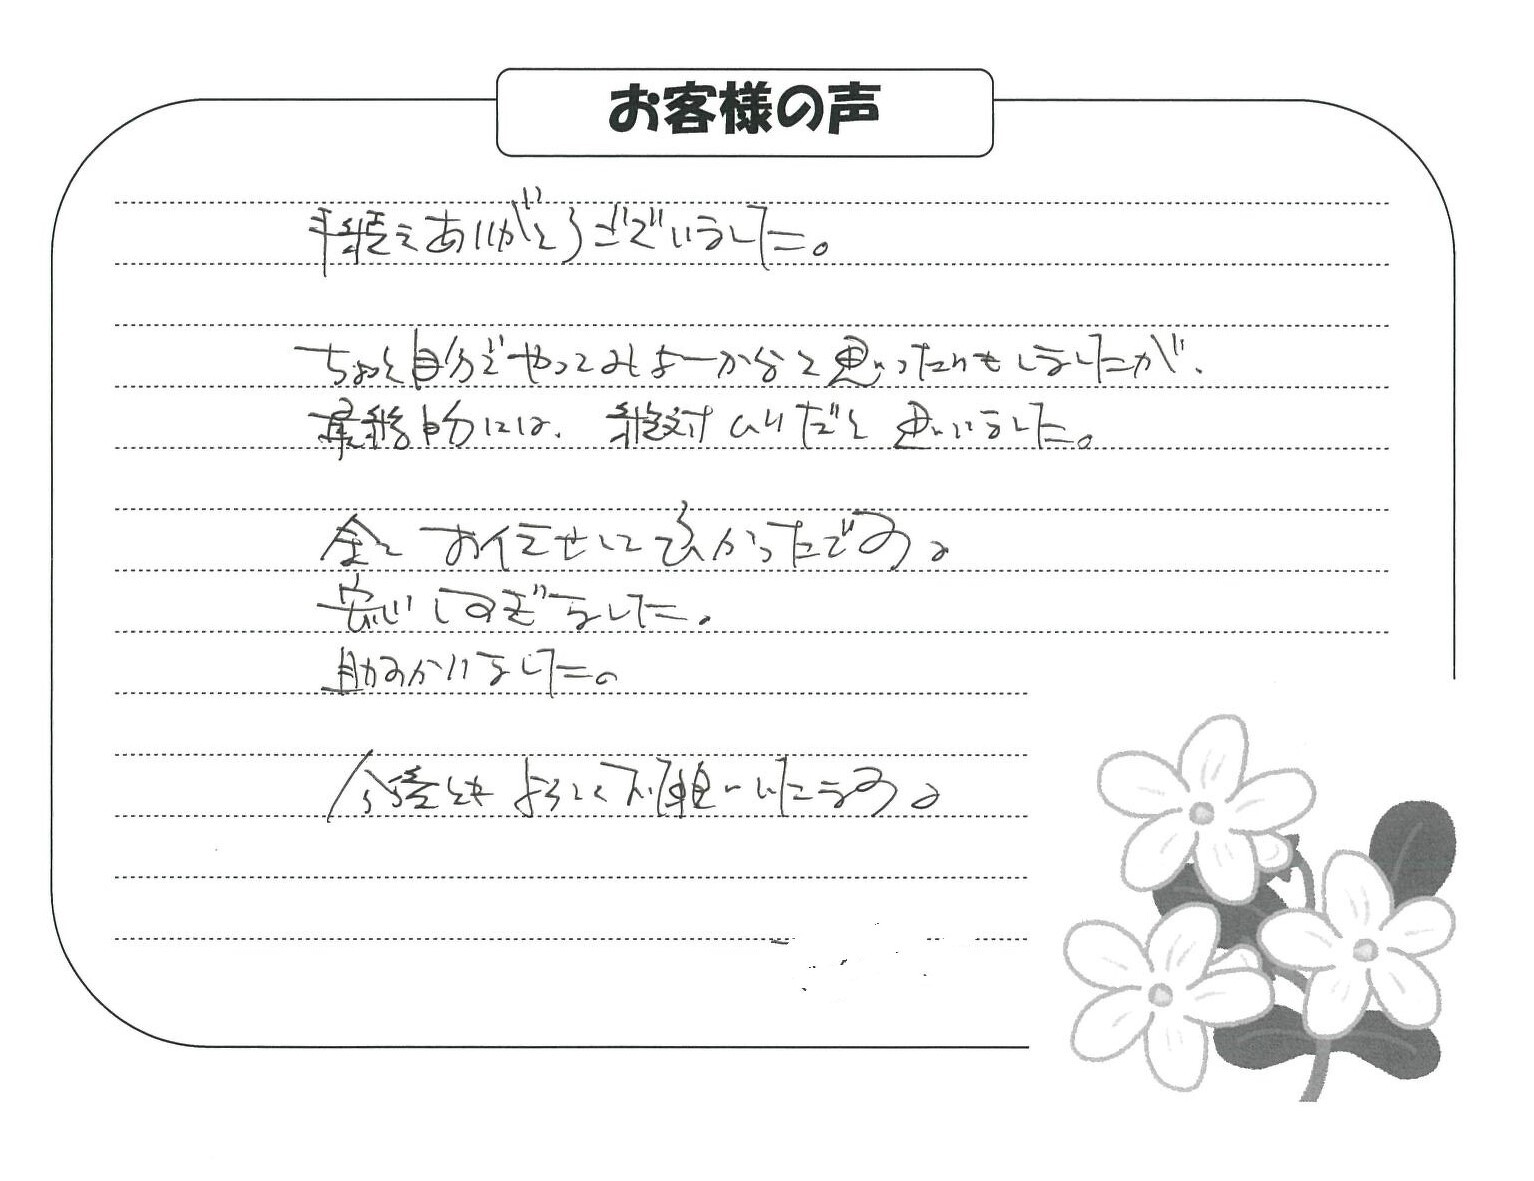 お客様の声
手伝えありがとうございました。
ちょっと自分でやってみよーかなと思ったりもしましたが、
最終的には、絶対ムリだと思いました。
全てお任せして良かったです。
安心しすぎました。
助かりました。
今後ともよろしくお願いいたします。